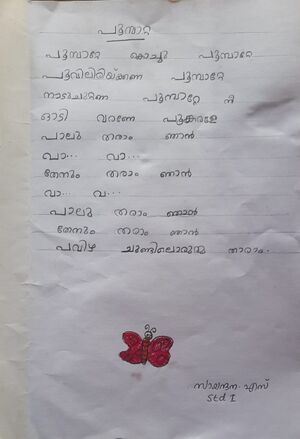 പൂമ്പാറ്റ
പൂമ്പാറ്റേ കൊച്ചു പൂമ്പാറ്റേ
പൂവിലിരിയ്ക്കണ പൂമ്പാറ്റേ
നാടുചുറ്റണ പൂമ്പാറ്റേ നീ
ഓടി വരണേ
പാലു തരാം ഞാൻ
വാ... വാ...
തേനും തരാം ഞാൻ
വാ... വ...
പാലു തരാം ഞാൻ
തേനും തരാം ഞാൻ
പവിഴ ചുണ്ടിലൊരുമ്മ താരാം.
സായന്ദന എസ്
Std I